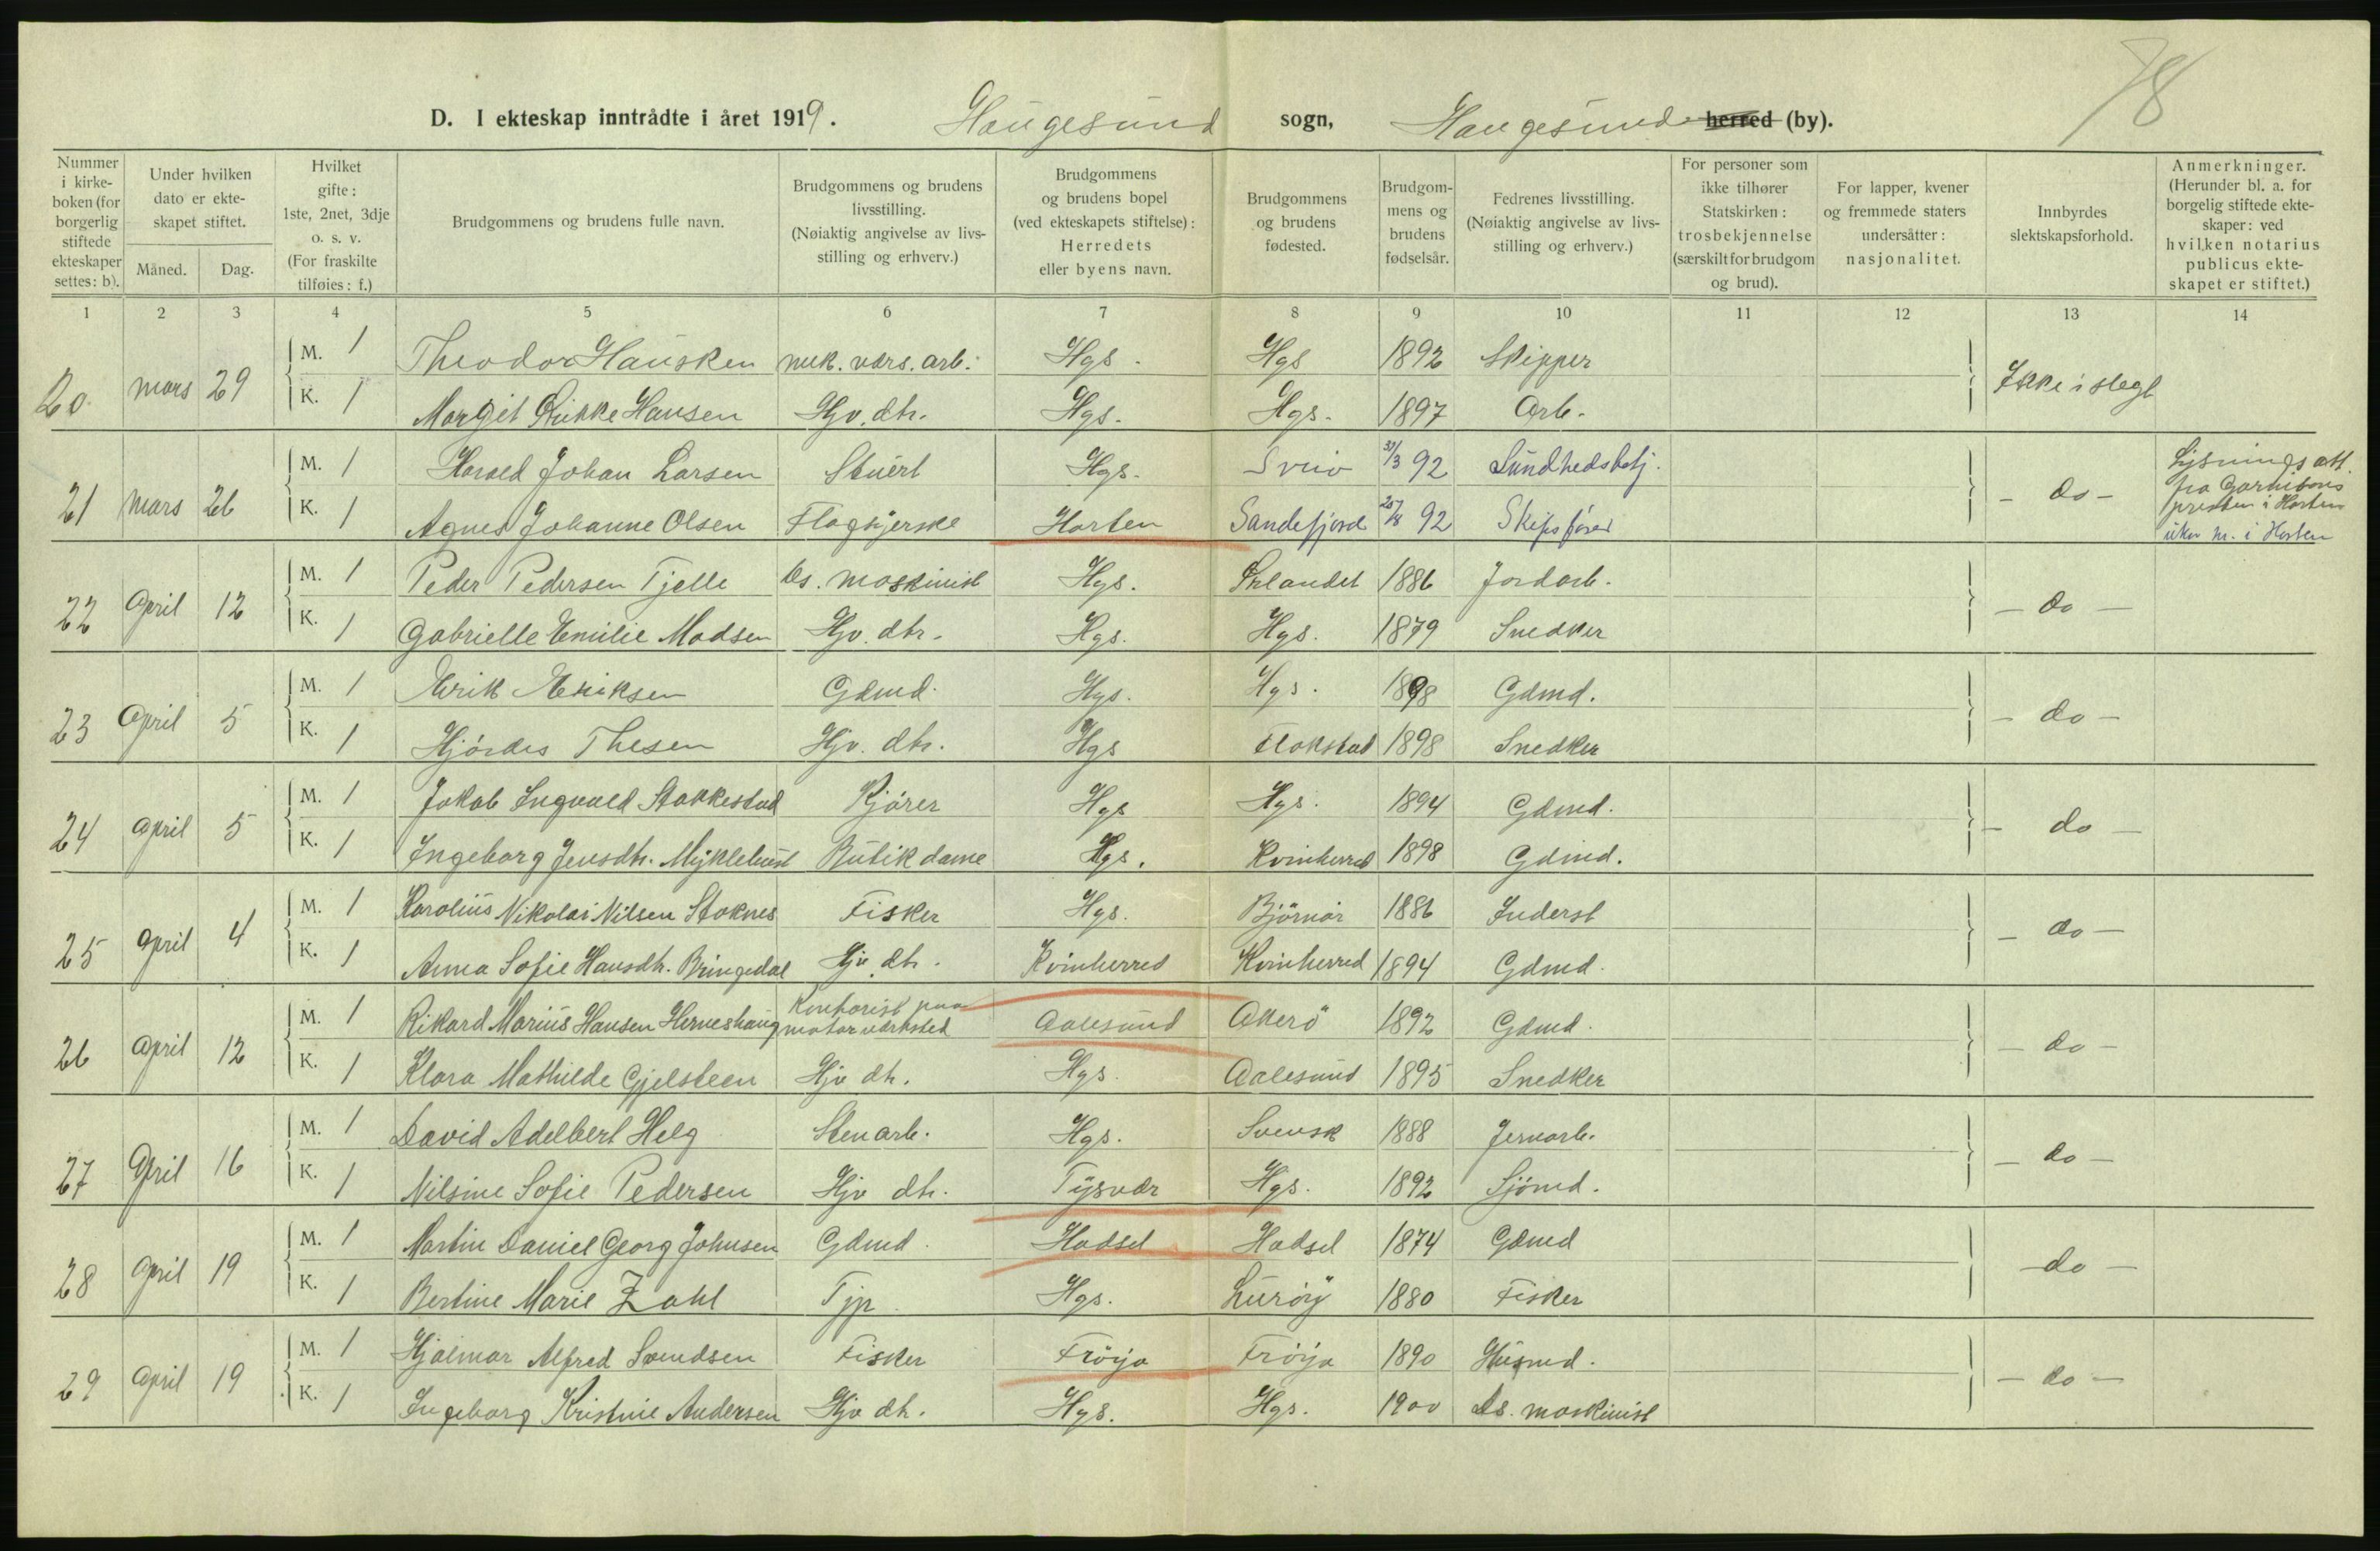 78
D. I ekteskap inntrådte i året 1919. Haugesund sogn, Haugesund herred (by).
Nummer i kirkeboken (for borgerlig stiftede ekteskaper settes: b).
Under hvilken dato er ekteskapet stiftet.
Måned. Dag.
Hvilket gifte: 1ste, 2net, 3dje o. s. v. (For fraskilte tilføies: f.)
Brudgommens og brudens fulle navn.
Brudgommens og brudens livsstilling. (Nøiaktig angivelse av livsstilling og erhverv.)
Brudgommens og brudens bopel (ved ekteskapets stiftelse): Herredets eller byens navn.
Brudgommens og brudens fødested.
Brudgommens og brudens fødselsår.
Fedrenes livsstilling. (Nøiaktig angivelse av livsstilling og erhverv.)
For personer som ikke tilhører Statskirken: trosbekjennelse (særskilt for brudgom og brud).
For lapper, kvener og fremmede staters undersåtter: nasjonalitet.
Innbyrdes slektskapsforhold.
Anmerkninger. (Herunder bl. a. for borgelig stiftede ekteskaper: ved hvilken notarius publicus ekteskapet er stiftet.)
1 2 3 4 5 6 7 8 9 10 11 12 13 14
20 mars 29 M. 1 Theodor Hausken mek. værs. arb. Hgs. Hgs 1892 Skipper Ikke i slegt
K. 1 Margit Rukke Hansen Hjv. dtr. Hgs. Hgs. 1897 Arb.
21 mars 26 M. 1 Harald Johan Larsen Stuert Hgs. Sveio 92 Sundhedsbetj. - do -
K. 1 Agnes Johanne Olsen Horten Sandefjord 92 Skipsfører
Lysningsatt. fra Garnisonspresten i Horten
uten nr. i Horten
22 April 12 M. 1 Peder Pedersen Tjelle ds. maskinist Hgs. 1886 Jordarb. - do -
K. 1 Gabrielle Emilie Madsen Hjv. dtr. Hgs. Hgs. 1879 Snedker
23 April 5 M. 1 Erik Eriksen Gdmd. Hgs. Hgs. 1898 Gdmd. - do -
K. 1 Hjördis Thesen Hjv. dtr. Hgs Flakstad 1898 Snedker
24 April 5 M. 1 Jakob Ingvald Stakkestad Kjörer Hgs Hgs. 1894 Gdmd. - do -
K. 1 Ingeborg Jensdtr. Myklebust Butikdame Hgs. Kvinherred 1898 Gdmd.
25 April 4 M. 1 Karolius Nikolai Nilsen Stoknes Fisker Hgs. Björnör 1886 Inderst - do -
K. 1 Anna Sofie Hansdtr. Bringedal Hjv. dtr. Kvinherred Kvinherred 1894 Gdmd.
26 April 12 M. 1 Rikard Marius Hansen Herneshaug Kontorist paa motorværksted Aalesund Akerö 1892 Gdmd. - do -
K. 1 Klara Mathilde Gjelsteen Hjv dtr. Hgs. Aalesund 1895 Snedker
27 April 16 M. 1 David Adelbert Helg Stenarb. Hgs. Svensk 1888 Jernarb. - do -
K. 1 Nilsine Sofie Pedersen Hjv dtr. Tysvær Hgs. 1892 Sjömd.
28 April 19 M. 1 Martin Daniel Georg Johnsen Gdmd. Hadsel Hadsel 1874 Gdmd - do -
K. 1 Bertine Marie Zahl Tjp. Hgs. Luröy 1880 Fisker
29 April 19 M. 1 Hjalmar Alfred Svendsen Fisker Fröya Fröya 1890 Husmd. - do -
K. 1 Ingeborg Kristine Andersen Hjv dtr. Hgs. Hgs. 1900 Ds. maskinist